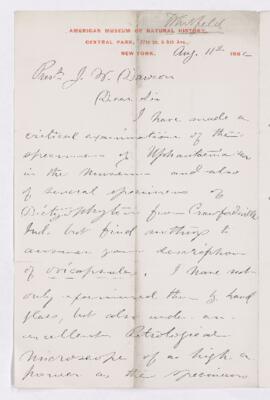 Whitfield
AMERICAN MUSEUM OF NATURAL HISTORY,
CENTRAL PARK, 77th St. & 8th Ave.,
NEW YORK. Aug. 11th 188
J. W. Dawson
Dear Sir
I have made a
critical examination of the
specimens of Uphantaenia
in the Museum and also
of several specimens of
Dictyophyton from Crawfordsville
Ind. but find nothing to
answer your description
of ovicapsules. I have not
only examined them by hand
glass, but also under an
excellent Petrological
microscope of as high a
power as the specimens